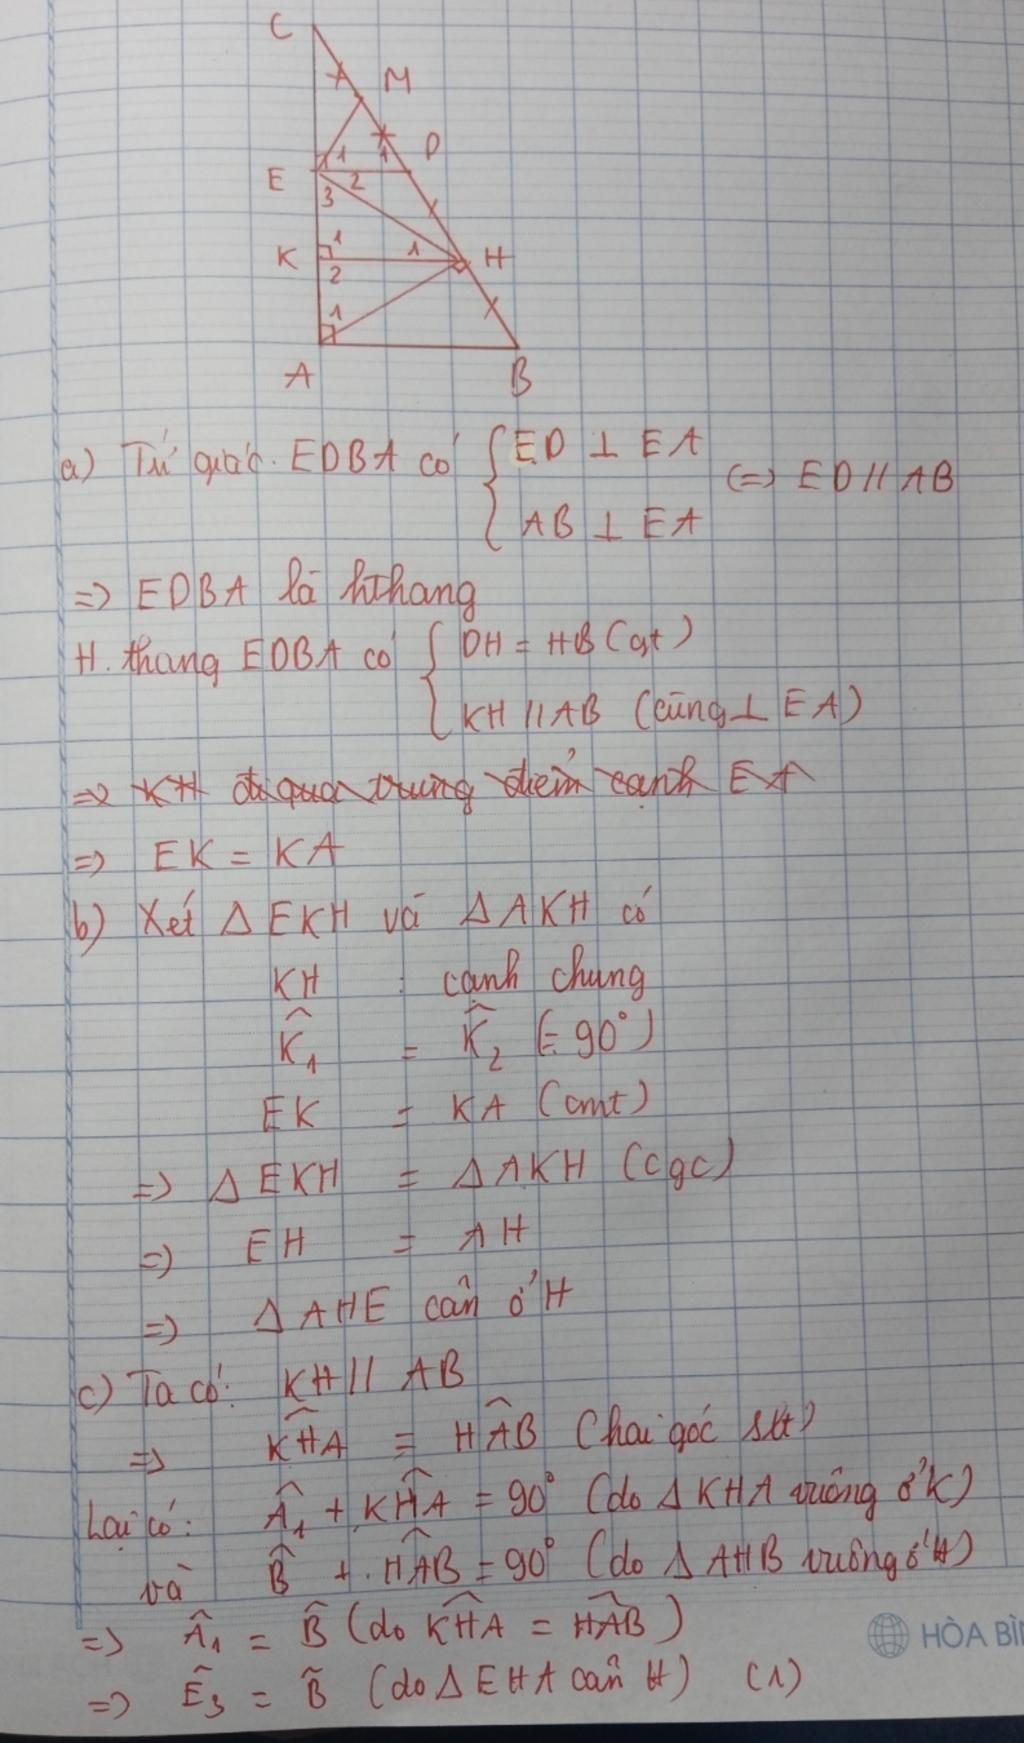 C
M
1 1 D
E 2
3
K 1 1 H
2
1
A B
a) Tứ giác. EDBA có { ED ⊥ EA (=> ED // AB
AB ⊥ EA
=> EDBA là hthang
H. thang EDBA có { DH = HB (gt)
KH // AB (cùng ⊥ EA)
=> KH đi qua trung điểm cạnh EA
=> EK = KA
b) Xét Δ EKH và Δ AKH có
KH : cạnh chung
K̂₁ = K̂₂ (= 90°)
EK = KA (cmt)
=> Δ EKH = Δ AKH (cgc)
=> EH = AH
=> Δ AHE cân ở H
c) Ta có: KH // AB
=> KĤA = HÂB (hai góc slt)
Lại có: Â₁ + KĤA = 90° (do Δ KHA vuông ở K)
và B̂ + HÂB = 90° (do Δ AHB vuông ở H)
=> Â₁ = B̂ (do KĤA = HÂB)
=> Ê₃ = B̂ (do Δ EHA cân H) (1)
HÒA BÌ